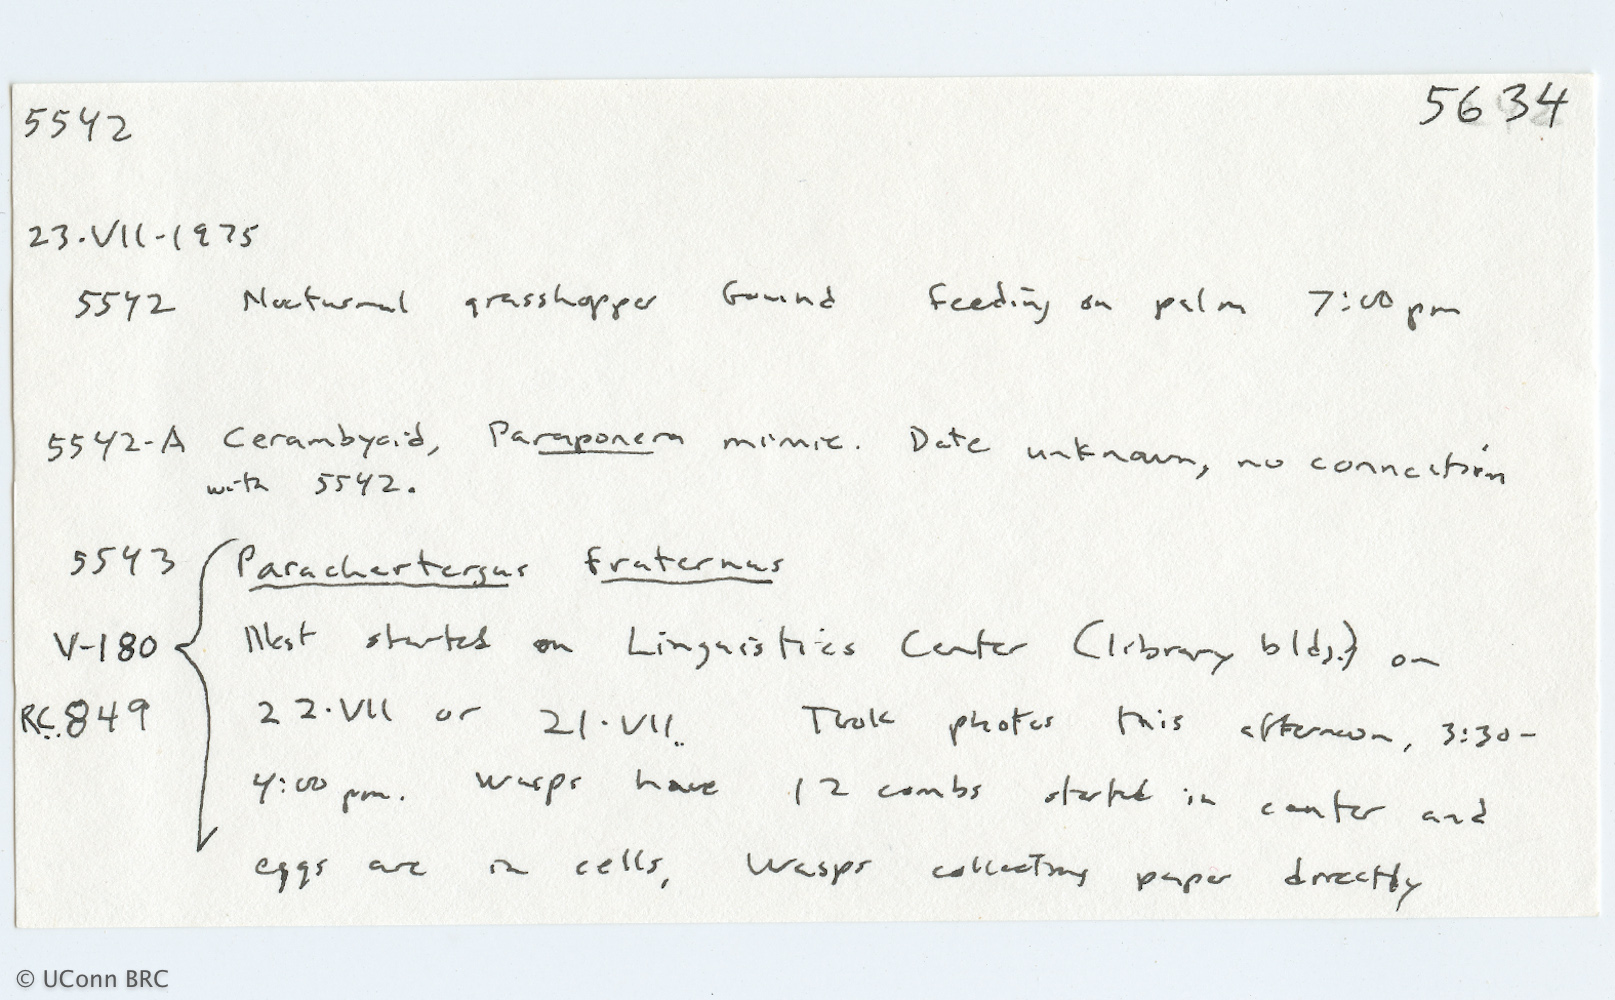 5542 5634
23.VII-1975
5542 Nocturnal grasshopper found feeding on palm 7:00 pm
5542-A Cerambycid, Paraponera mimic. Date unknown, no connection
with 5542.
5543 Parachartergus fraternus
V-180 Nest started on Linguistics Center (library bldg.) on
RC.849 22.VII or 21.VII. Took photos this afternoon, 3:30-
4:00 pm. Wasps have 12 combs started in center and
eggs are in cells, Wasps collecting paper directly
© UConn BRC